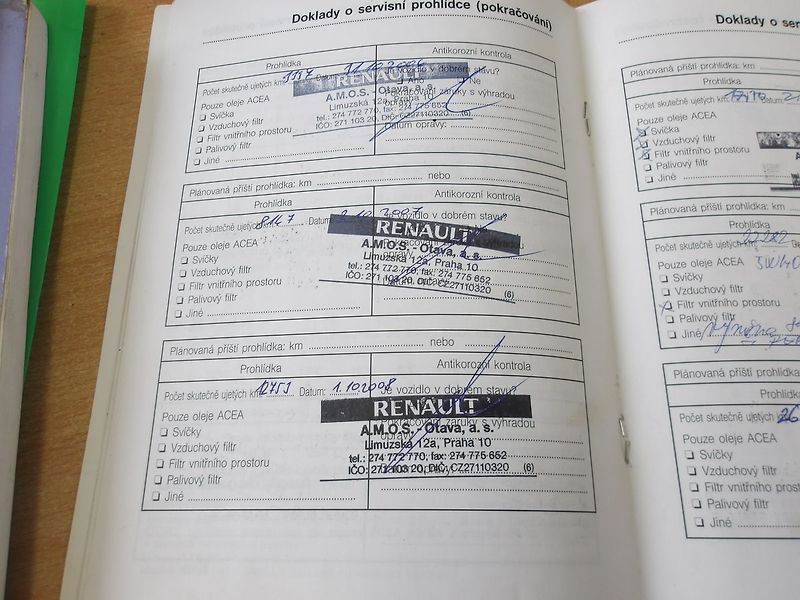 Doklady o servisní prohlídce (pokračování)
Prohlídka
Antikorozní kontrola
Počet skutečně ujetých km: Datum: 11.10.2006
Je vozidlo v dobrém stavu?
Ano Ne
Pouze oleje ACEA
Pokračování záruky s výhradou
Svíčka
Vzduchový filtr
Filtr vnitřního prostoru
Palivový filtr
Jiné
Datum opravy:
RENAULT
A.M.O.S. - Otava, a. s.
Limuzská 12a, Praha 10
tel.: 274 772 770, fax: 274 775 652
IČO: 271 103 20, DIČ: CZ27110320 (6)
Plánovaná příští prohlídka: km nebo
Prohlídka
Antikorozní kontrola
Počet skutečně ujetých km: 8147 Datum: 2.10.2007
Je vozidlo v dobrém stavu?
Pouze oleje ACEA
Svíčky
Vzduchový filtr
Filtr vnitřního prostoru
Palivový filtr
Jiné
RENAULT
A.M.O.S. - Otava, a. s.
Limuzská 12a, Praha 10
tel.: 274 772 770, fax: 274 775 652
IČO: 271 103 20, DIČ: CZ27110320 (6)
Plánovaná příští prohlídka: km nebo
Prohlídka
Antikorozní kontrola
Počet skutečně ujetých km: 12753 Datum: 1.10.2008
Je vozidlo v dobrém stavu?
Pouze oleje ACEA
Pokračování záruky s výhradou
Svíčky
Vzduchový filtr
Filtr vnitřního prostoru
Palivový filtr
Jiné
RENAULT
A.M.O.S. - Otava, a. s.
Limuzská 12a, Praha 10
tel.: 274 772 770, fax: 274 775 652
IČO: 271 103 20, DIČ: CZ27110320 (6)
Doklady o ser
Plánovaná příští prohlídka: km
Prohlídka
Počet skutečně ujetých km: Datum:
Pouze oleje ACEA
Svíčka
Vzduchový filtr
Filtr vnitřního prostoru
Palivový filtr
Jiné
Plánovaná příští prohlídka: km
Prohlídka
Počet skutečně ujetých km: 22282 Datum:
Pouze oleje ACEA 5W40
Svíčka
Vzduchový filtr
Filtr vnitřního prostoru
Palivový filtr
Jiné Výměna
Plánovaná příští prohlídka: km
Prohlídka
Počet skutečně ujetých km: 26
Pouze oleje ACEA
Svíčky
Vzduchový filtr
Filtr vnitřního prostoru
Palivový filtr
Jiné